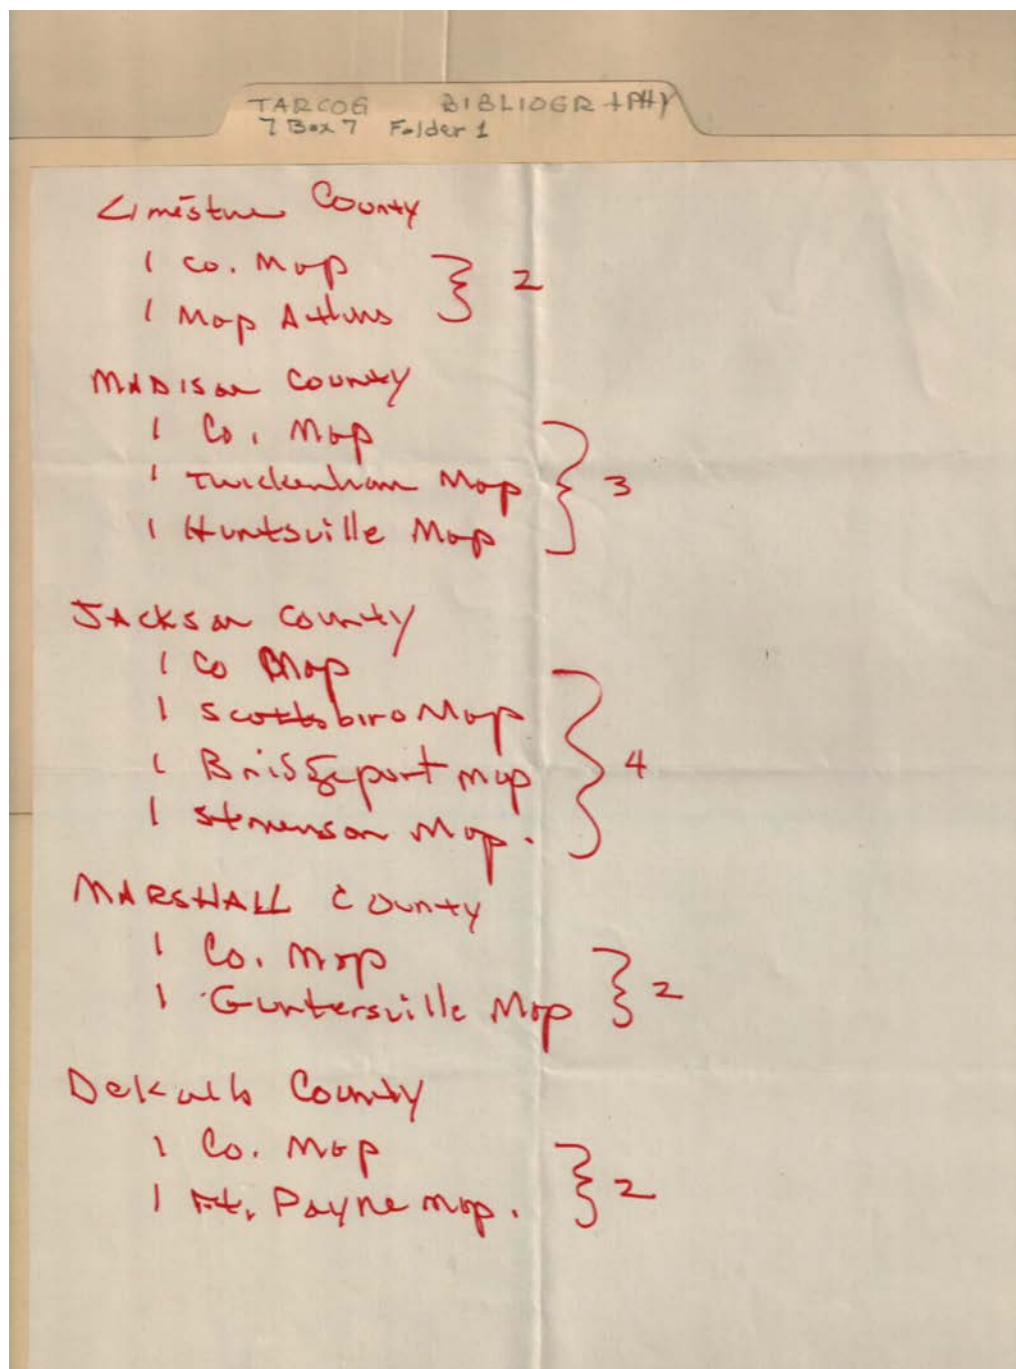 TARCOG BIBLIOGRAPHY
7 Box 7 Folder 1
Limestone County
1 Co. Map
1 Map Athens } 2
MADISON County
1 Co. Map
1 Twickenham Map } 3
1 Huntsville Map
JACKSON County
1 Co Map
1 Scottsboro Map
1 Bridgeport Map } 4
1 Stevenson Map.
MARSHALL County
1 Co. Map
1 Guntersville Map } 2
Dekalb County
1 Co. Map
1 Ft. Payne Map. } 2